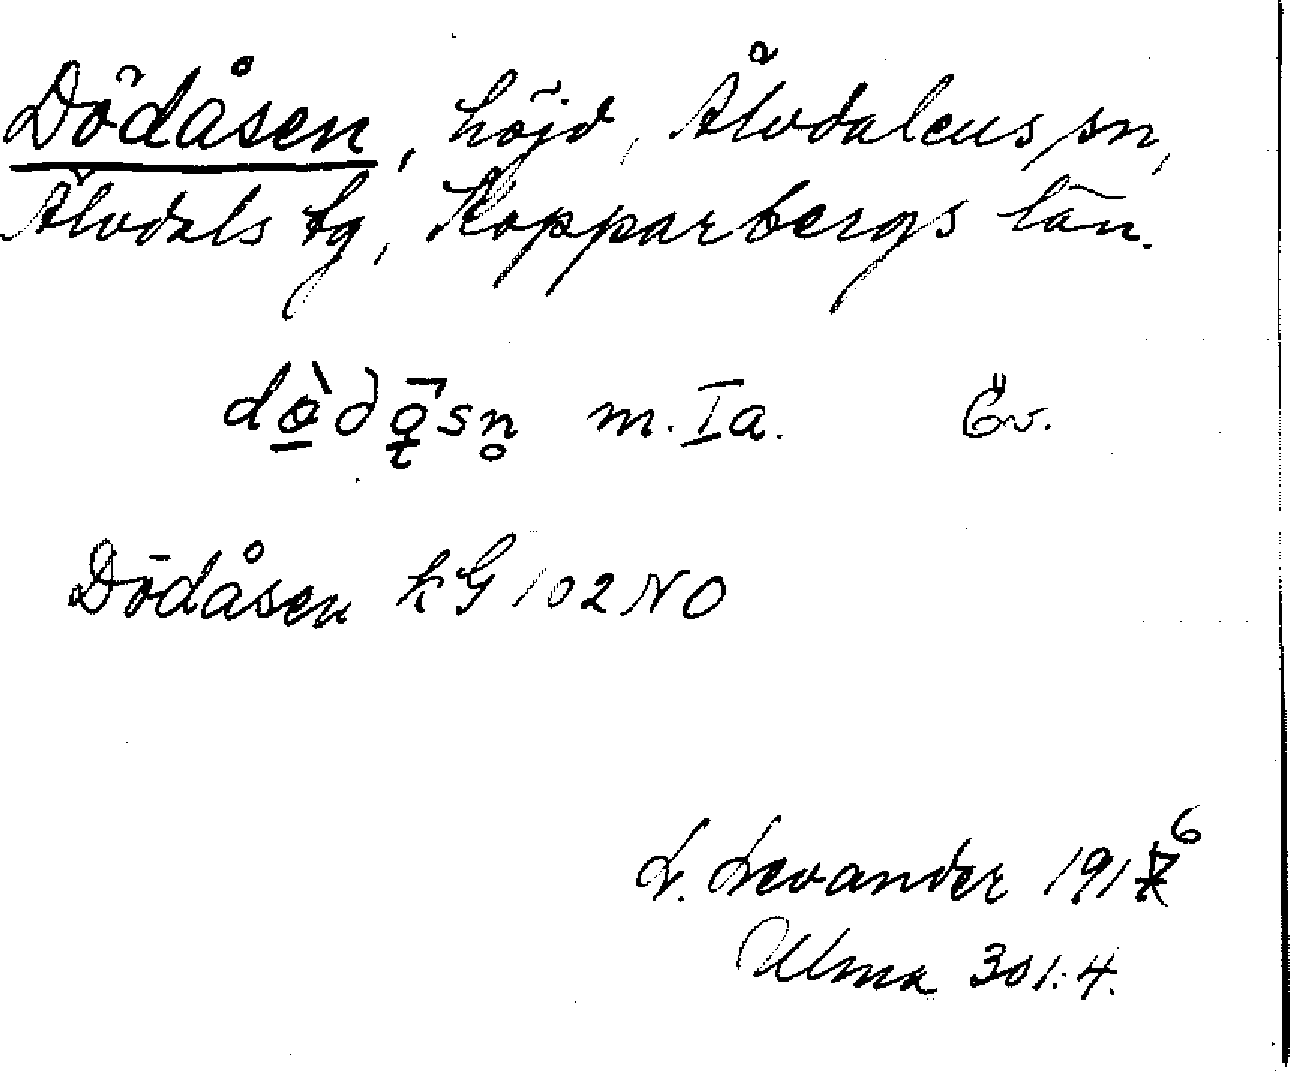 Dödåsen, höjd, Älvdalens sn,
Älvdals tg, Kopparbergs län.
m. Ia. Öv.
Dödåsen kG 102 NO
L. Levander 1916
Ulma 301:4.